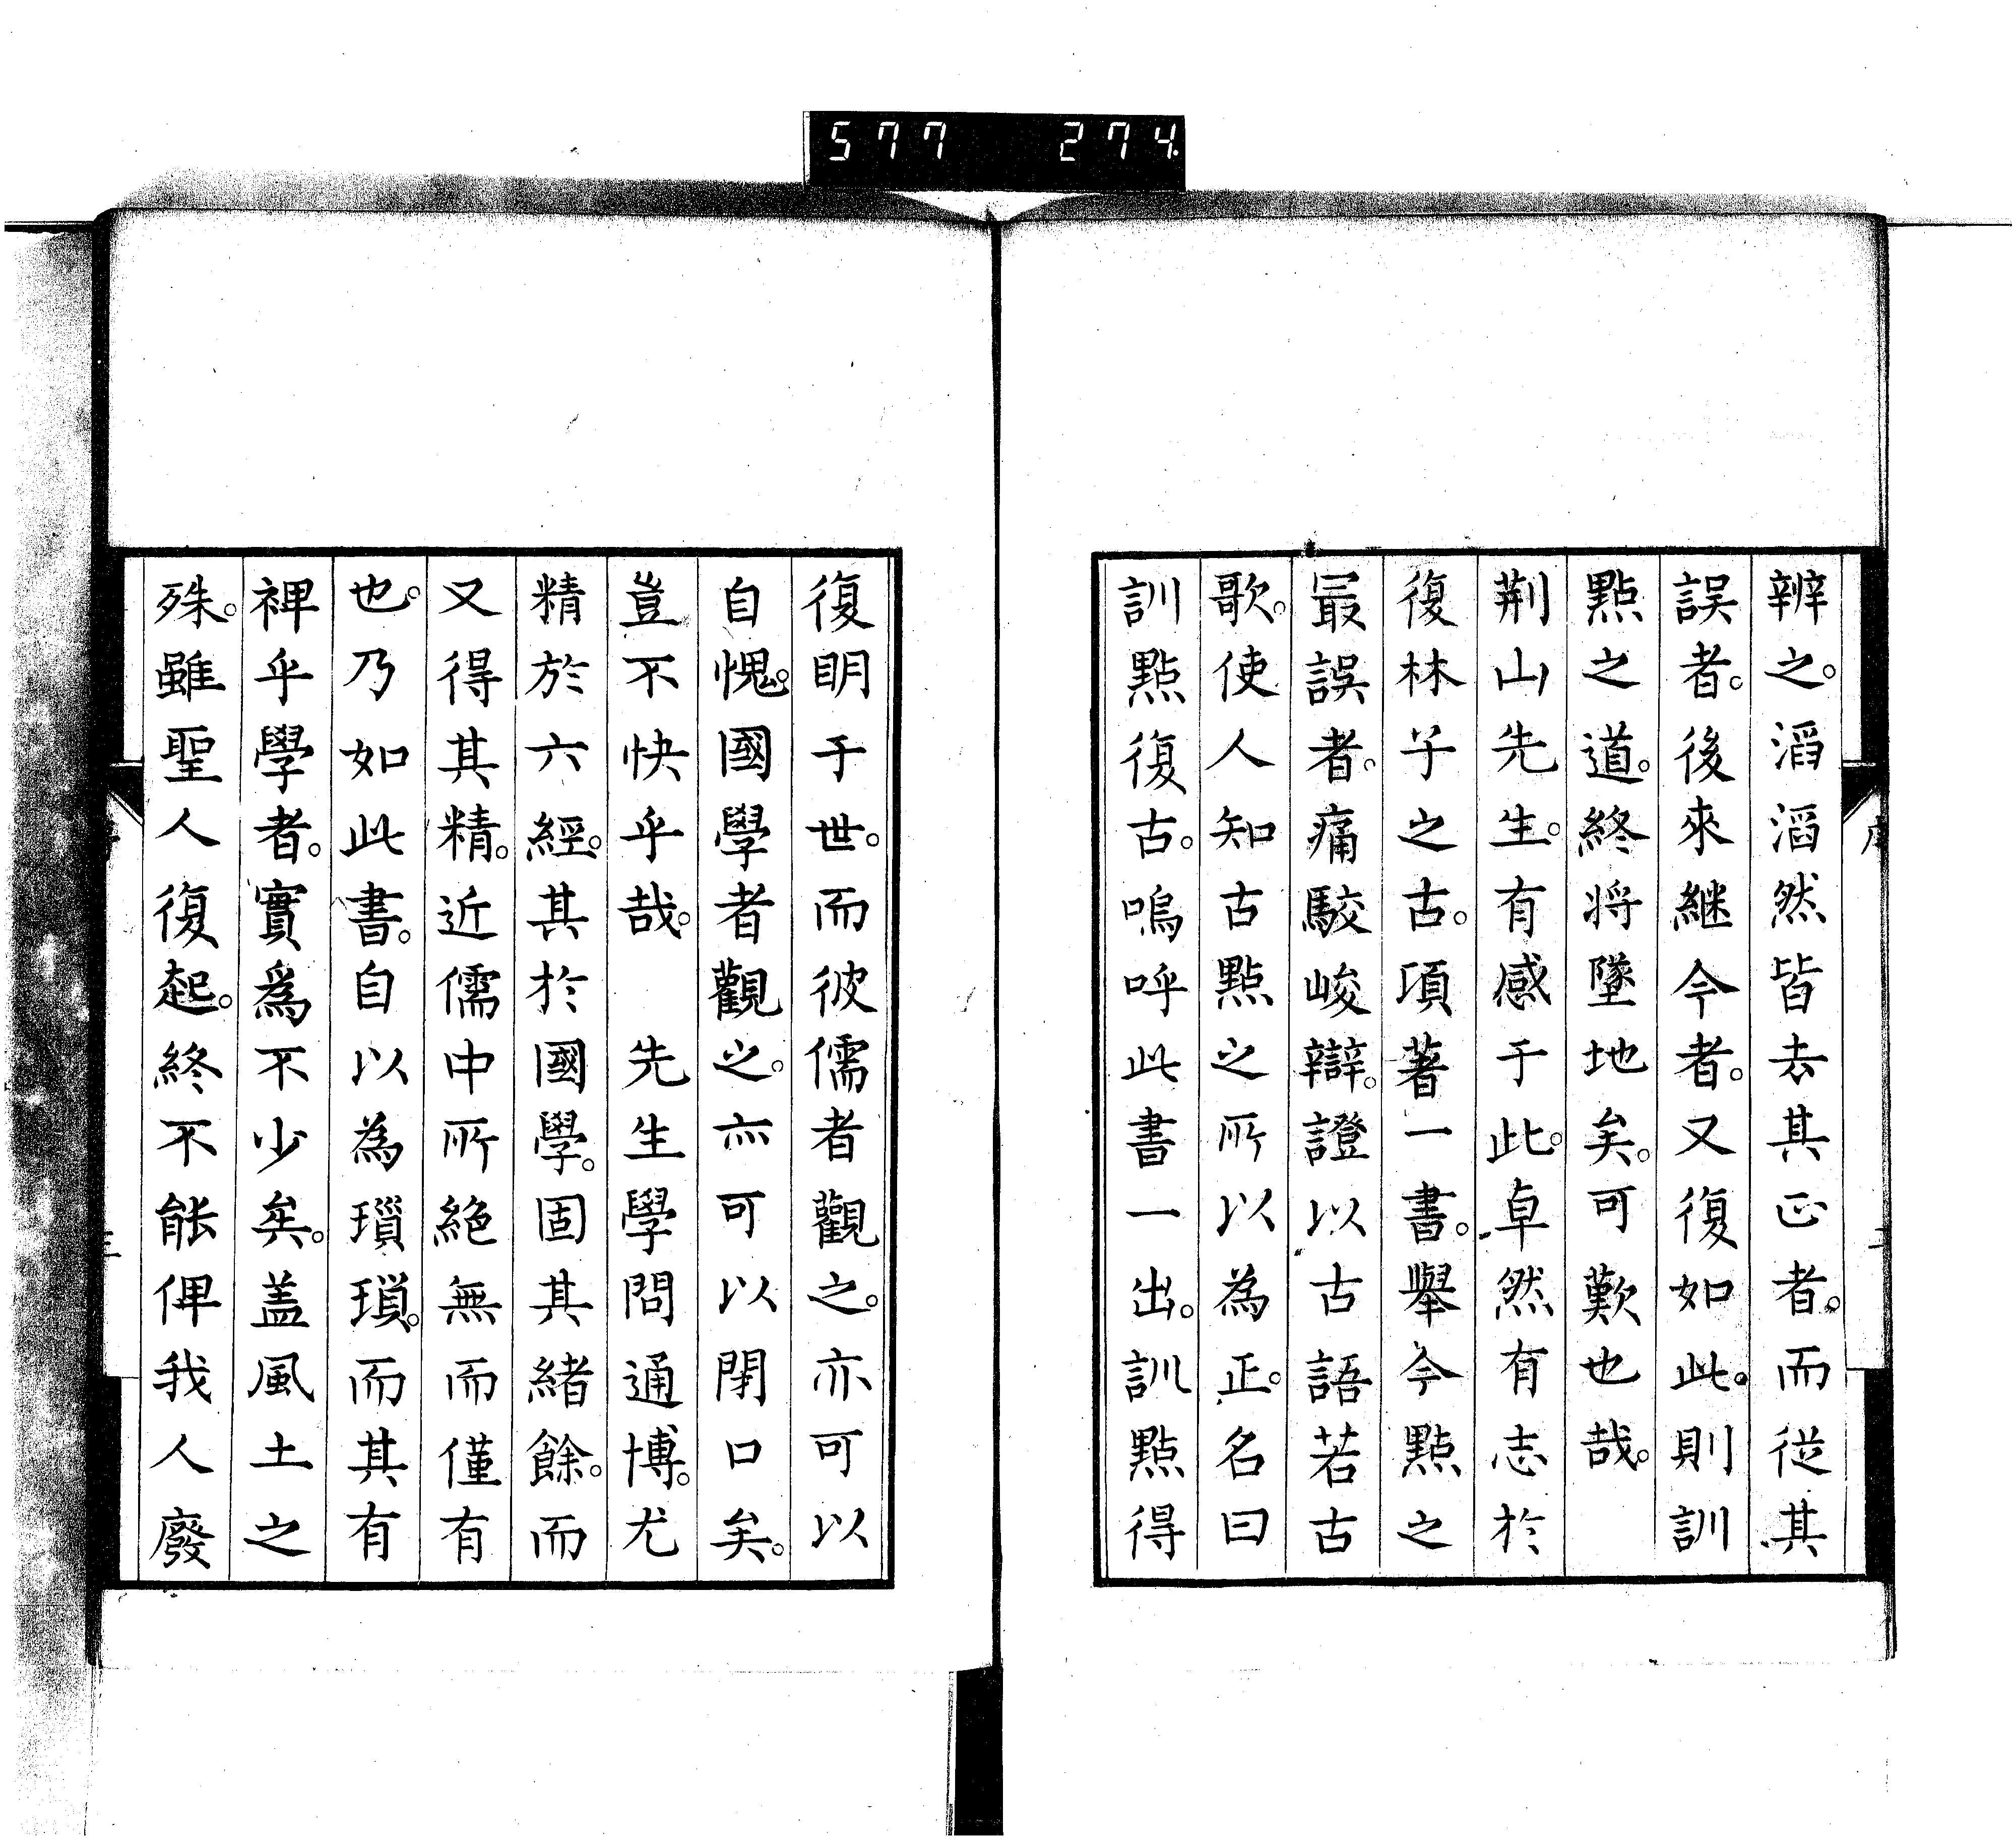 577 274.
辨之。滔滔然皆去其正者。而從其
誤者。後來継今者。又復如此。則訓
點之道。終将墜地矣。可歎也哉。
荆山先生。有感于此。卓然有志於
復林子之古。項著一書。舉今點之
最誤者。痛駮峻辯。證以古語若古
歌。使人知古點之所以為正。名曰
訓點復古。嗚呼此書一出。訓點得
復明于世。而彼儒者觀之。亦可以
自愧。國學者觀之。亦可以閉口矣。
豈不快乎哉。 先生學問通博。尤
精於六經。其於國學。固其緒餘。而
又得其精。近儒中所絶無而僅有
也。乃如此書。自以為瑣瑣。而其有
裨乎學者。實爲不少矣。盖風土之
殊。雖聖人復起。終不能俾我人廢
三